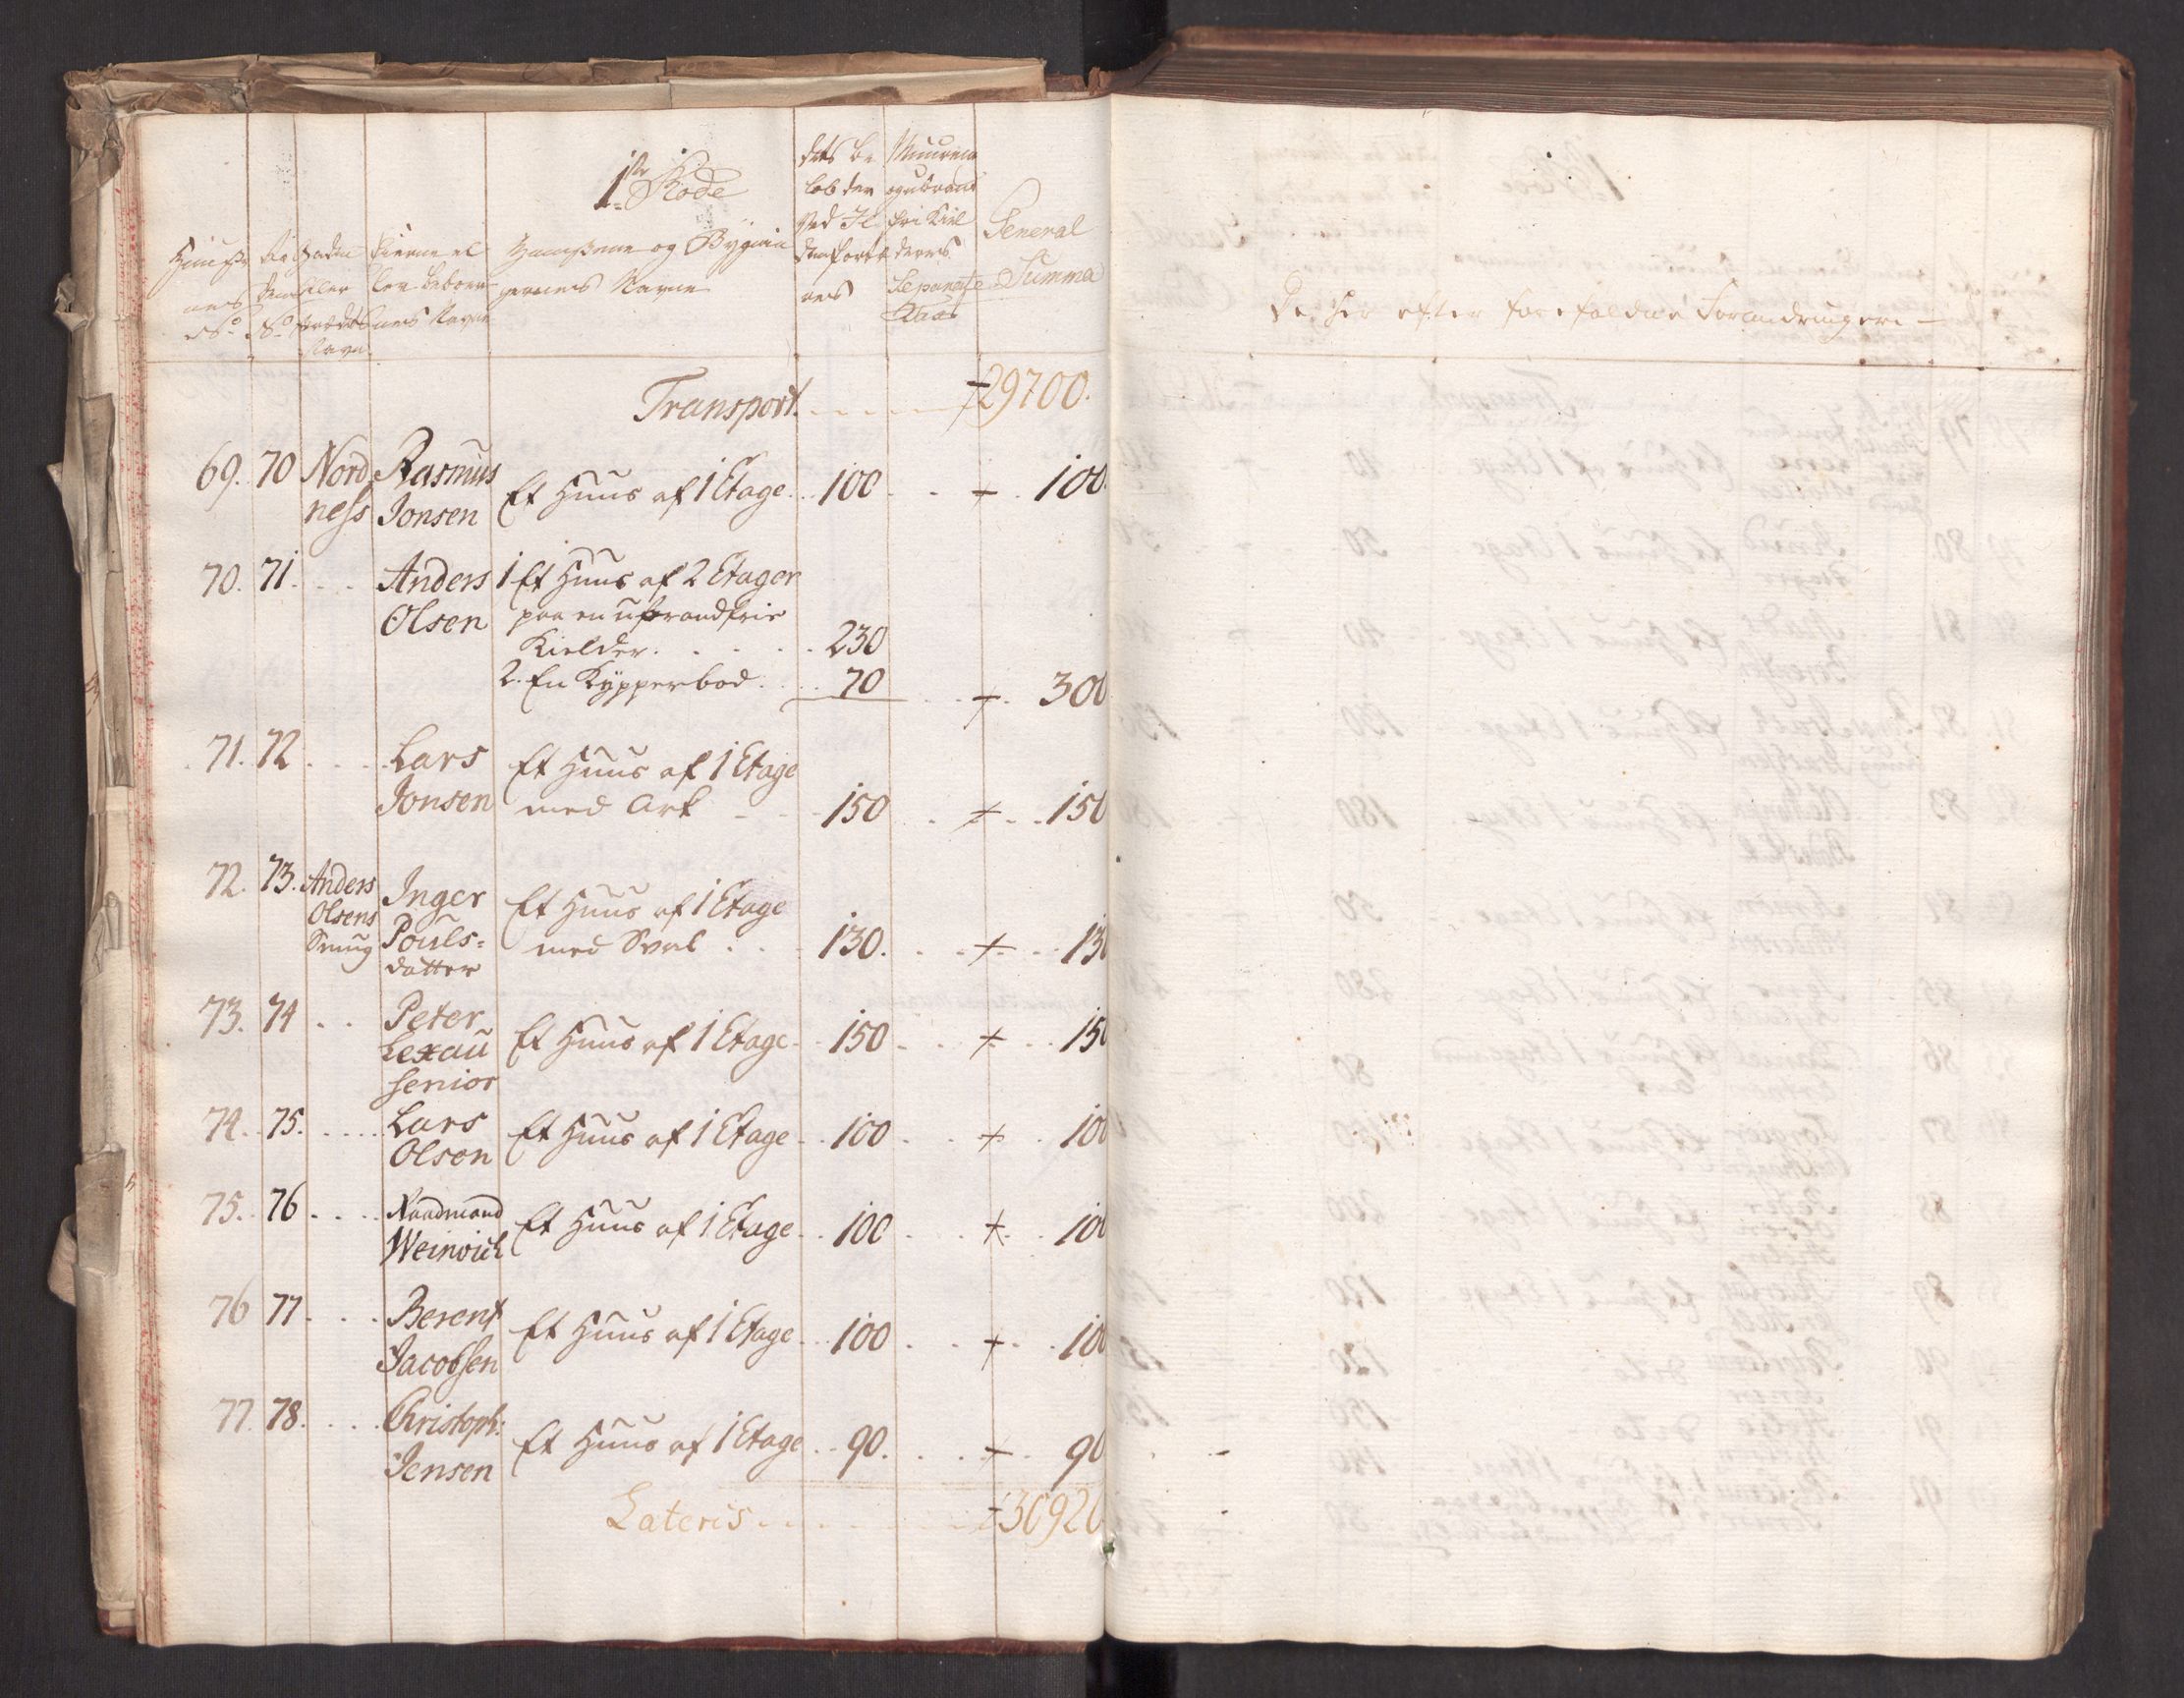 1ste Rode
General
Summa
Huusenes og Bygnin
gernes Navne
Transport 29700.
69. 70 Nordness Rasmus Jonsen Et Huus af 1 Etage 100 100
70. 71. Anders Olsen 1 Et Huus af 2 Etager
paa en ubrandfrie
Kielder 230
2. En Kypperbod 70 300
71. 72 Lars Jonsen Et Huus af 1 Etage
med Ark 150 150
72. 73. Anders Olsens Smug Inger Pouls=datter Et Huus af 1 Etage
med Sval 130. 130
73. 74 Peter Lexau senior Et Huus af 1 Etage 150 150
74. 75. Lars Olsen Et Huus af 1 Etage 100 100
75. 76 Raadmand Weinwich Et Huus af 1 Etage 100 100
76 77 Berent Jacobsen Et Huus af 1 Etage 100 100
77. 78. Christoph: Jensen Et Huus af 1 Etage 90. 90
Lateris 30920
De her efter forefaldne Forandringer